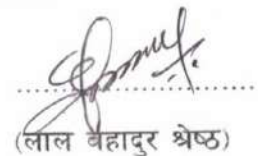 (लाल बहादुर श्रेष्ठ)